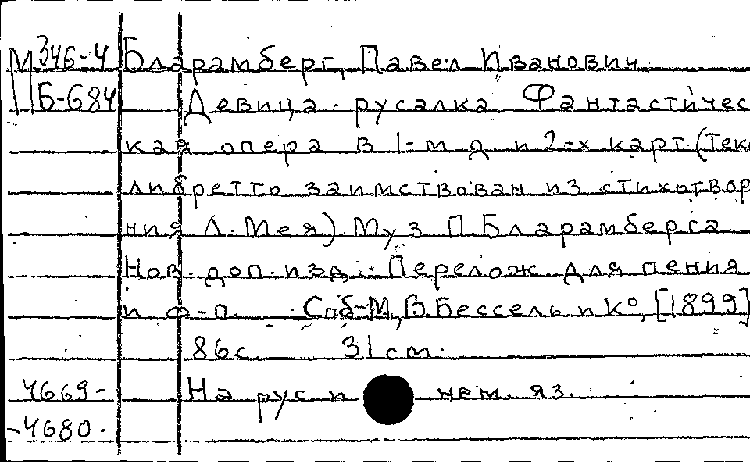 М 346-4 Бларамберг, Павел Иванович.
Б-684 Девица-русалка. Фантастичес
кая опера в 1-м д. и 2-х карт. (Тек
либретто заимствован из стихотвор
ния Л. Мея). Муз. П. Бларамберга
Нов. доп. изд. Перелож. для пения
и ф-п. Спб-М, В. Бессель и К°, [1899]
86 с. 31 см.
4669- На рус. и нем. яз.
-4680.